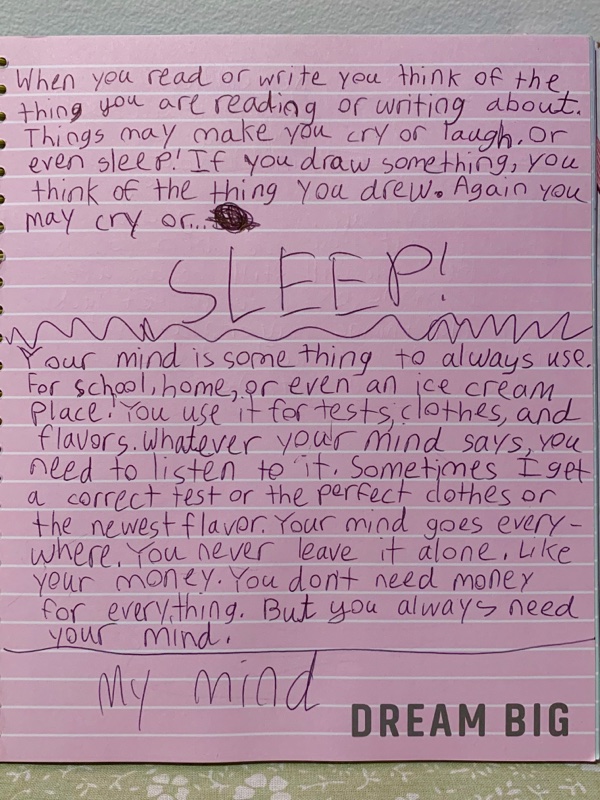 When you read or write you think of the
thing you are reading or writing about.
Things may make you cry or laugh. Or
even sleep! If you draw something, you
think of the thing you drew. Again you
may cry or...
SLEEP!
Your mind is something to always use.
For school, home, or even an ice cream
place. You use it for tests, clothes, and
flavors. Whatever your mind says, you
need to listen to it. Sometimes I get
a correct test or the perfect clothes or
the newest flavor. Your mind goes every-
where. You never leave it alone. Like
your money. You don't need money
for everything. But you always need
your mind.
My mind
DREAM BIG